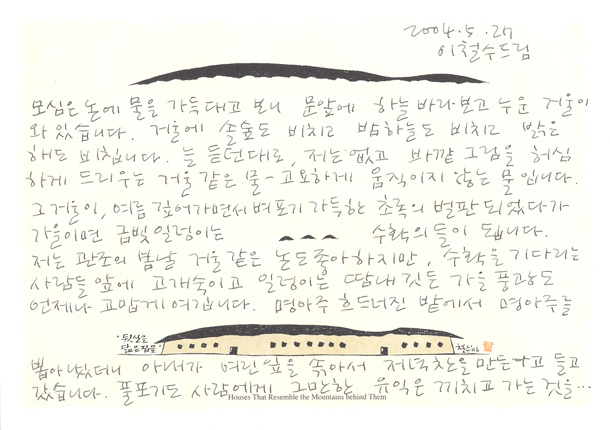 2004. 5. 27
이철수드림
모심은 논에 물을 가득대고 보니 문앞에 하늘 바라보고 누운 거울이
와 있습니다. 거울에 솔숲도 비치고 밤하늘도 비치고 밝은
해도 비칩니다. 늘 듣던대로, 저는 없고 바깥 그림을 허심
하게 드리우는 거울 같은 물-고요하게 움직이지 않는 물입니다.
그 거울이, 여름 깊어가면서 벼포기 가득한 초록의 벌판 되었다가
가을이면 금빛 일렁이는 수확의 들이 됩니다.
저는 관조의 봄날 거울 같은 논도 좋아하지만, 수확을 기다리는
사람들 앞에 고개숙이고 일렁이는 땀내 깃든 가을 풍광도
언제나 고맙게 여깁니다. 명아주 흐드러진 밭에서 명아주를
뒷산을
닮은 집들
철수
뽑아냈더니 아내가 여린 잎을 솎아서 저녁찬을 만든다고 들고
갔습니다. 풀포기도 사람에게 그만한 유익은 끼치고 가는 것을…
Houses That Resemble the Mountains behind Them